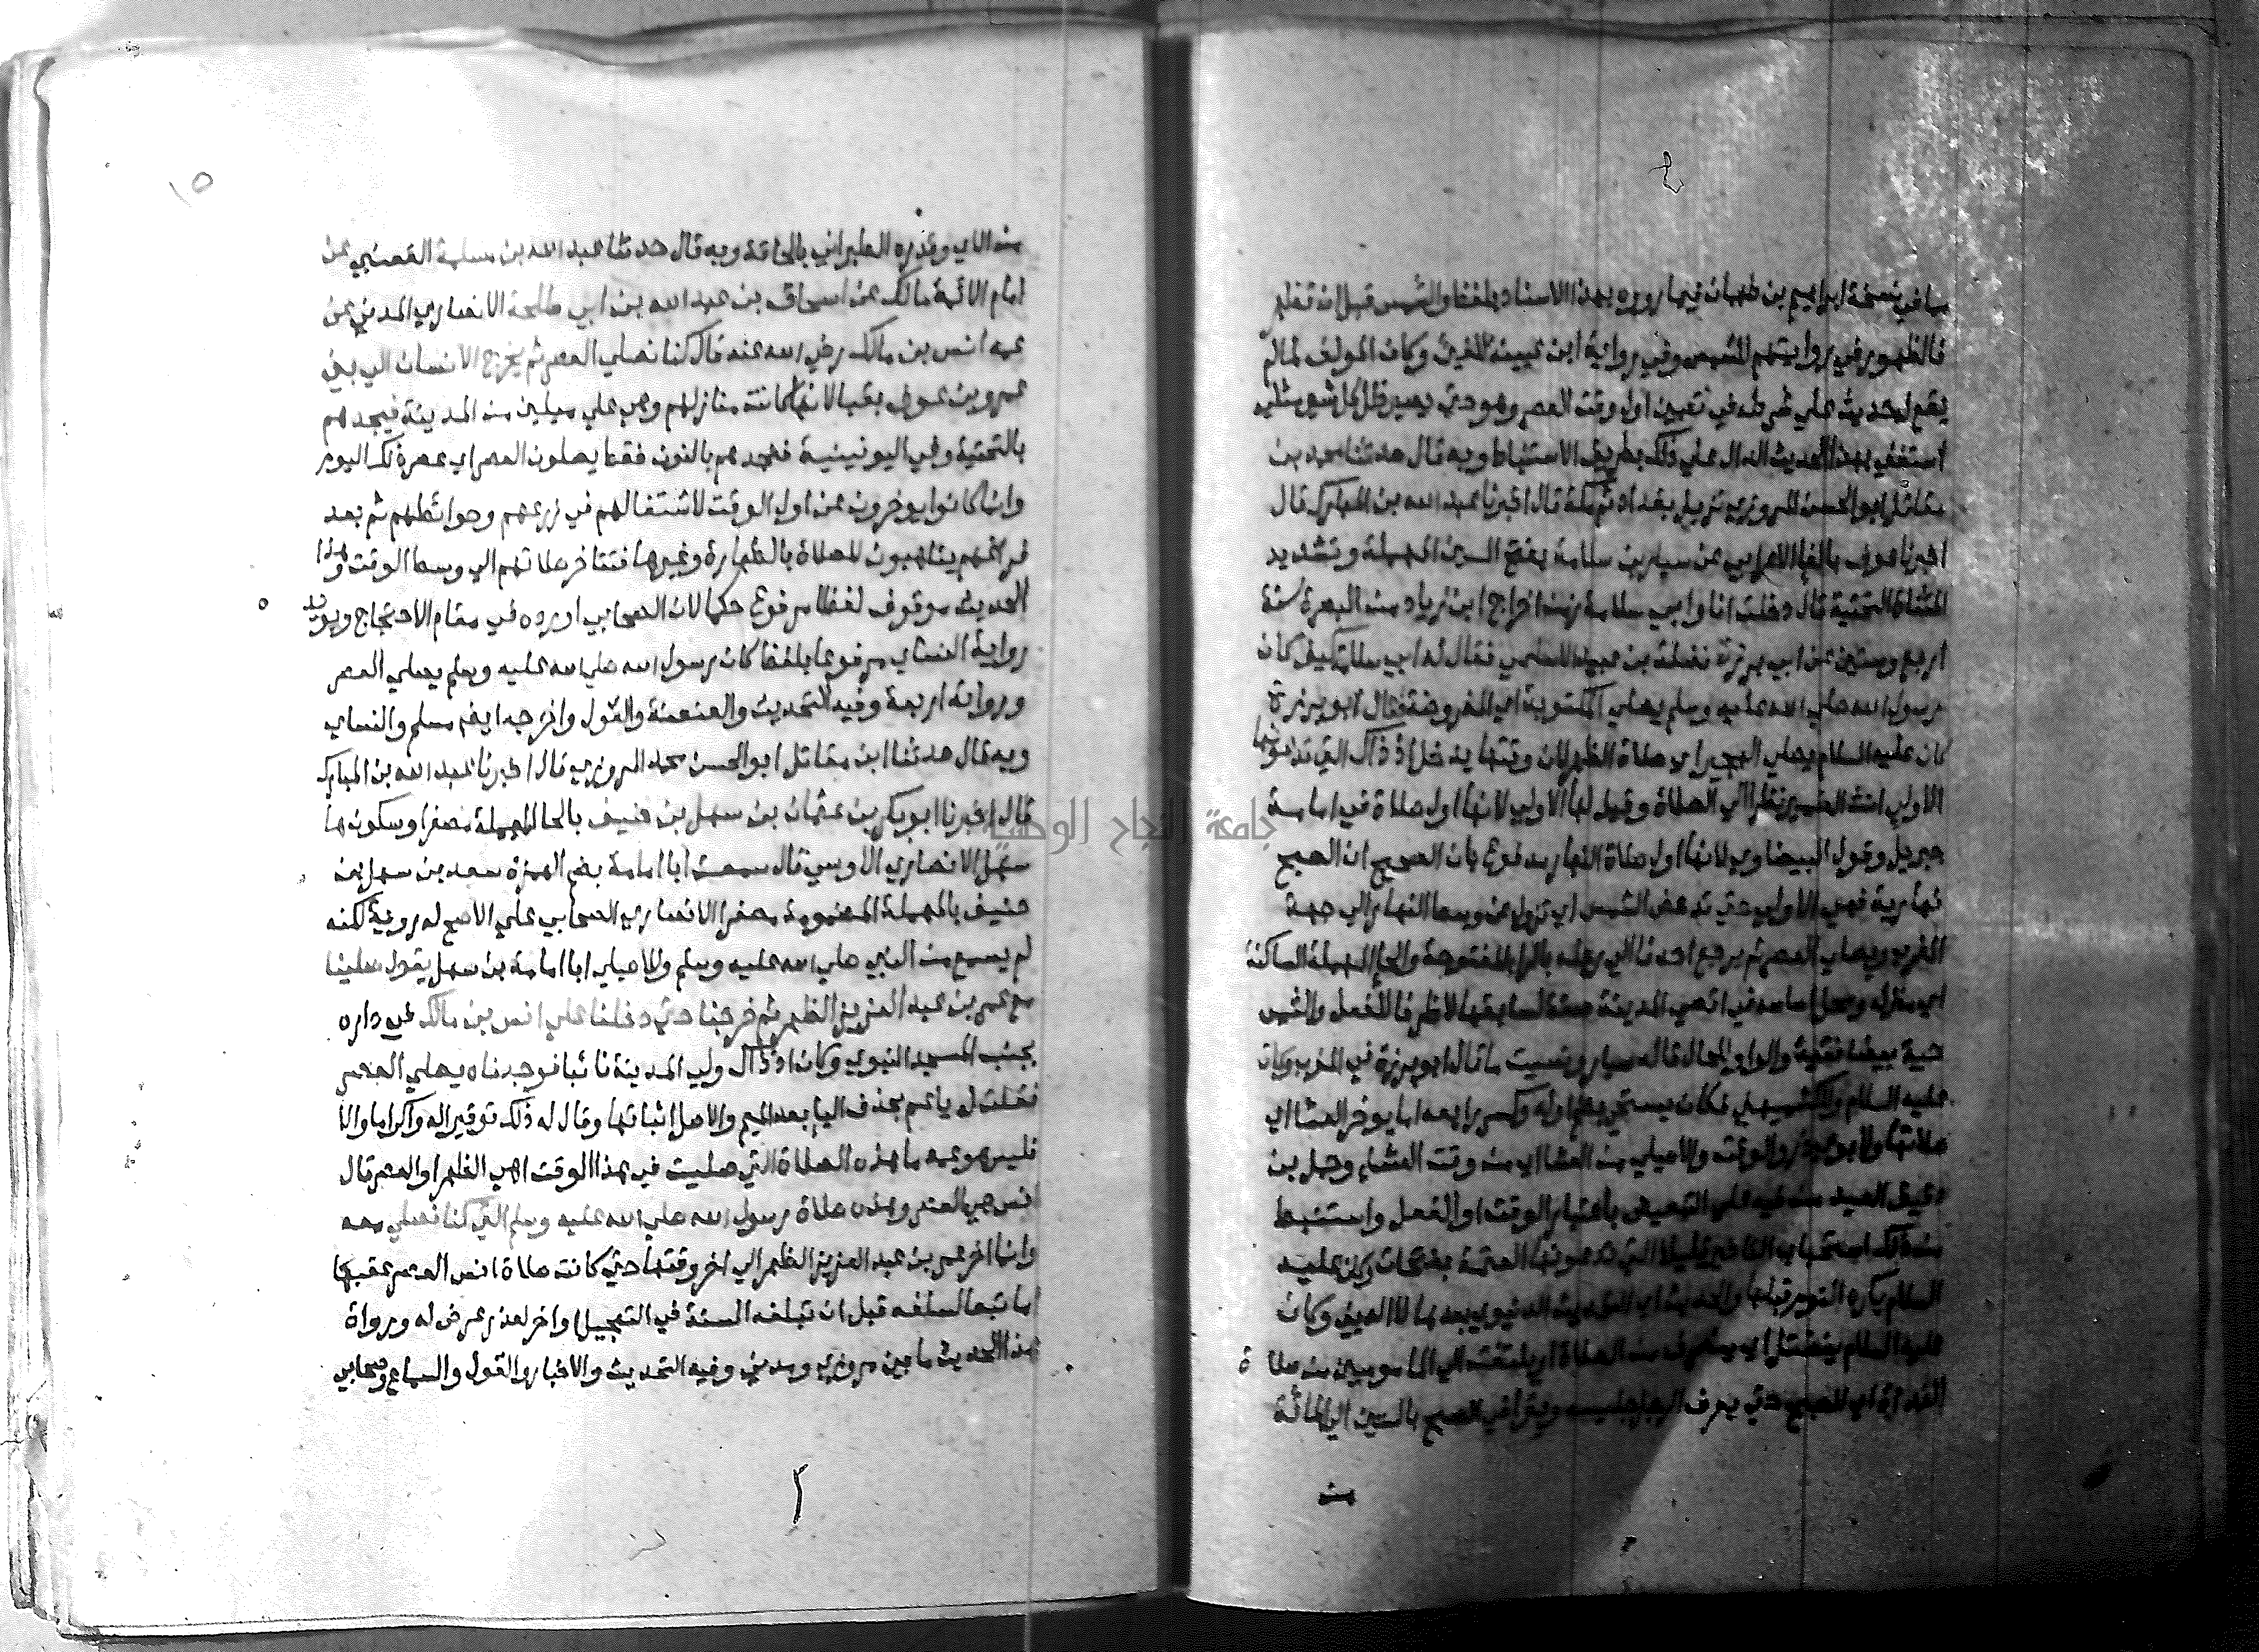 ما في نسخة ابراهيم بن طهمان فيما رويه بهذا الاسناد بلفظ والشمس قبل ان تظهر
فالظهور في روايتهم للشمس وفي رواية ابن عيينة للفيئ وكان المولف لما لم
يقع له حديث علي شرطه في تعيين اول وقت العصر وهو حتي يصير ظل كل شي مثله
استغني بهذا الحديث الدال علي ذلك بطريق الاستنباط وبه قال حدثنا محمد بن
مقاتل ابو الحسن المروزي نزيل بغداد ثم مكة قال اخبرنا عبد الله بن المبارك قال
اخبرنا عوف بالفا الاعرابي عن سيار بن سلامة بفتح السين المهملة وتشديد
المثناة التحتية قال دخلت انا وابي سلامة زمن اخراج ابن زياد من البصرة سنة
اربع وستين عن ابي برزة نضلة بن عبيد الاسلمي فقال له ابي سلامة كيف كان
رسول الله صلي الله عليه وسلم يصلي المكتوبة اي المفروضة فقال ابو برزة
كان عليه السلام يصلي الهجير اي صلاة الظهر لان وقتها يدخل اذ ذاك التي تدعونها
الاولي انث الضمير نظرا الي الصلاة وقيل لها الاولي لانها اول صلاة في امامة
جبريل وقول البيضاوي لانها اول صلاة النهار مدفوع بان الصحيح ان الصبح
نهارية فهي الاولي حتي تدحض الشمس اي تزول عن وسط النهار الي جهة
المغرب ويصلي العصر ثم يرجع احدنا الي رحله بالرا المفتوحة والحا المهملة الساكنة
اي منزله ومحل اساسه في اقصي المدينة صفة لسابقها لا ظرفا للفعل والشمس
حية بيضا نقية والواو للحال قال سيار ونسيت ما قال ابو برزة في المغرب وكان
عليه السلام وللكشميهني فكان يستحب بفتح اوله وكسر رابعه ان يوخر العشا اي
صلاتها ولابوي ذر والوقت والاصيلي من العشا اي من وقت العشاء وحمل بن
دقيق العيد من فيه علي التبعيض باعتبار الوقت او الفعل واستنبط
من ذلك استحباب التاخير قليلا التي تدعونها العتمة بفتحات وكان عليه
السلام يكره النوم قبلها والحديث اي التحديث الدنيوي بعدها لا الديني وكان
عليه السلام ينفتل اي ينصرف من الصلاة او يلتفت الي المامومين من صلاة
الغداة اي الصبح حتي يعرف الرجل جليسه ويقرا في الصبح بالستين الي المائة
من
١٥
من الاي وقدره الطبراني بالحاقة وبه قال حدثنا عبد الله بن مسلمة القعنبي عن
امام الائمة مالك عن اسحاق بن عبد الله بن ابي طلحة الانصاري المدني عن
عمه انس بن مالك رضي الله عنه قال كنا نصلي العصر ثم يخرج الانسان الي بني
عمرو بن عوف بقبا لانها كانت منازلهم وهي علي ميلين من المدينة فيجدهم
بالتحتية وفي اليونينية فنجدهم بالنون فقط يصلون العصر اي عصر ذلك اليوم
وانما كانوا يوخرون عن اول الوقت لاشتغالهم في زرعهم وحوائطهم ثم بعد
فراغهم يتاهبون للصلاة بالطهارة وغيرها فتتاخر صلاتهم الي وسط الوقت وهذا
الحديث موقوف لفظا مرفوع حكما لان الصحابي اورده في مقام الاحتجاج ويويد
رواية النساي مرفوعا بلفظ كان رسول الله صلي الله عليه وسلم يصلي العصر
ورواته اربعة وفيه التحديث والعنعنة والقول واخرجه ايضم مسلم والنساي
وبه قال حدثنا ابن مقاتل ابو الحسن محمد المروزي قال اخبرنا عبد الله بن المبارك
قال اخبرنا ابو بكر بن عثمان بن سهل بن حنيف بالحا المهملة مصغرا وسكون ها
سهل الانصاري الاوسي قال سمعت ابا امامة بضم الهمزة سعد بن سهل بن
حنيف بالمهملة المضمومة مصغرا الانصاري الصحابي علي الاصح له روية لكنه
لم يسمع من النبي صلي الله عليه وسلم وللاصيلي ابا امامة بن سهل يقول صلينا
مع عمر بن عبد العزيز الظهر ثم خرجنا حتي دخلنا علي انس بن مالك في داره
بجنب المسجد النبوي وكان اذ ذاك ولي المدينة نائبا فوجدناه يصلي العصر
فقلت له يا عم بحذف اليا بعد الميم والاصل اثباتها وقال له ذلك توقيرا له واكراما والا
فليس هو عمه ما هذه الصلاة التي صليت في هذا الوقت اهي الظهر او العصر قال
انس هي العصر وهذه صلاة رسول الله صلي الله عليه وسلم التي كنا نصلي معه
وانما اخر عمر بن عبد العزيز الظهر الي اخر وقتها حتي كانت صلاة انس العصر عقبها
اما تبعا لسلفه قبل ان تبلغه السنة في التعجيل او اخر لعذر عرض له ورواة
هذا الحديث ما بين مروزي ومدني وفيه التحديث والاخبار والقول والسماع وصحابي
جامعة النجاح الوطنية